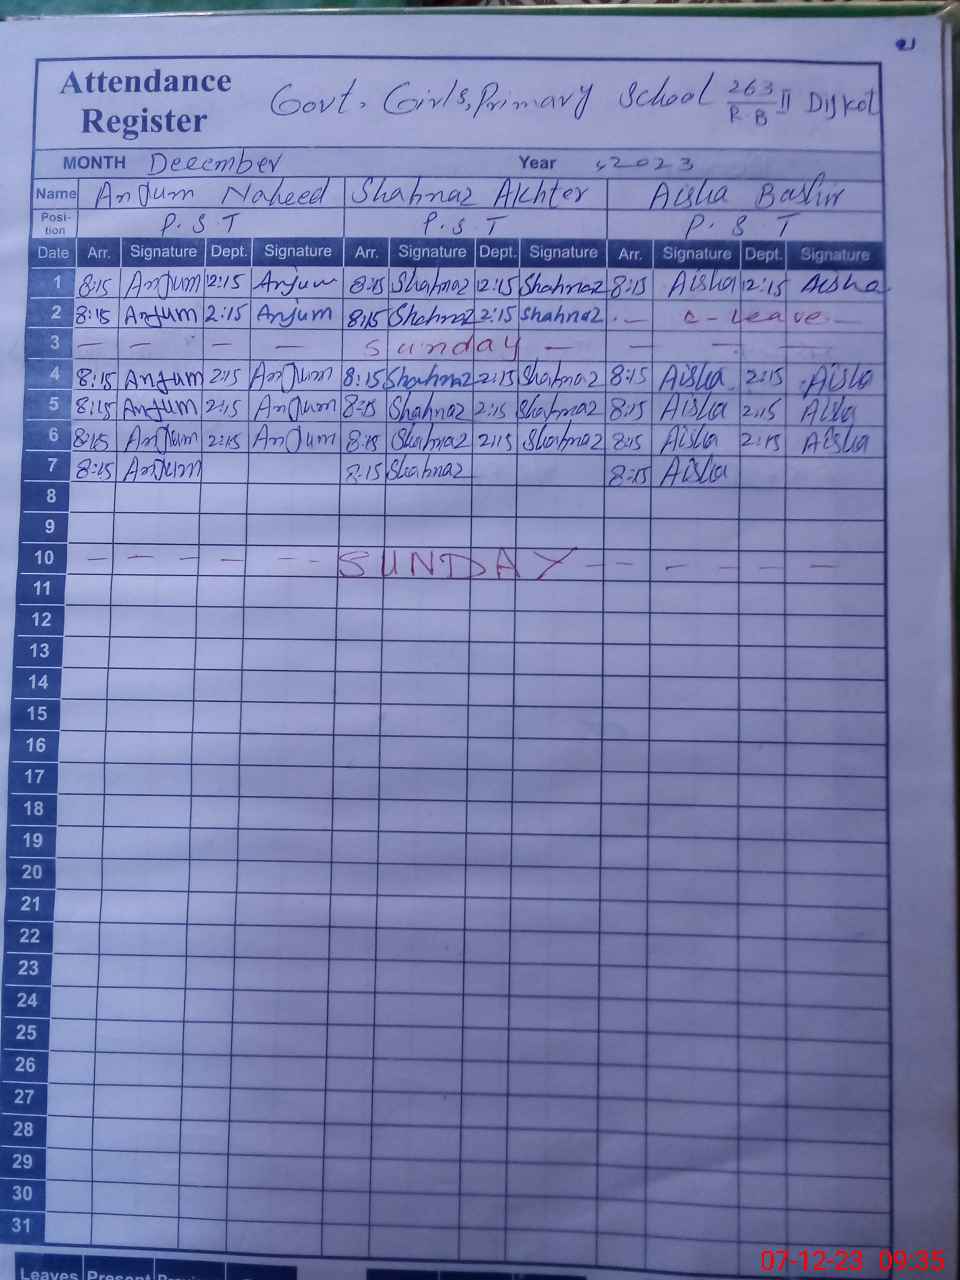 Attendance Register Govt. Girls, Primary School 263/R.B II Dijkot
MONTH December Year 2023
Name Anjum Naheed Shahnaz Akhter Aisha Bashir
Position P.S.T P.S.T P.S.T
Date Arr. Signature Dept. Signature Arr. Signature Dept. Signature Arr. Signature Dept. Signature
1 8:15 Anjum 12:15 Anjum 8:15 Shahnaz 12:15 Shahnaz 8:15 Aisha 12:15 Aisha
2 8:15 Anjum 2:15 Anjum 8:15 Shahnaz 2:15 Shahnaz - C-Leave -
3 - - - - Sunday - - - -
4 8:15 Anjum 2:15 Anjum 8:15 Shahnaz 2:15 Shahnaz 8:15 Aisha 2:15 Aisha
5 8:15 Anjum 2:15 Anjum 8:15 Shahnaz 2:15 Shahnaz 8:15 Aisha 2:15 Aisha
6 8:15 Anjum 2:15 Anjum 8:15 Shahnaz 2:15 Shahnaz 8:15 Aisha 2:15 Aisha
7 8:15 Anjum 8:15 Shahnaz 8:15 Aisha
8
9
10 - - - - - - SUNDAY - - - - - -
11
12
13
14
15
16
17
18
19
20
21
22
23
24
25
26
27
28
29
30
31
Leaves Present
07-12-23 09:35